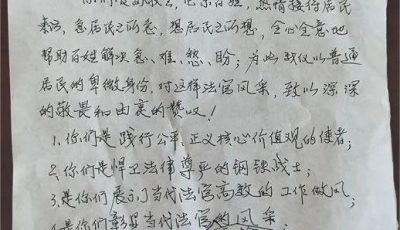 热情接待居民
来访,急居民之所急,想居民之所想,全心全意地
帮助百姓解决急、难、愁、盼;为此我仅以普通
居民的卑微身份,对这样法官风采,致以深深
的敬畏和由衷的赞叹!
1.你们是践行公平、正义核心价值观的使者;
2.你们是悍卫法律尊严的钢铁战士;
3.是你们展示了当代法官高效的工作做风;
4.是你们彰显当代法官的风采;